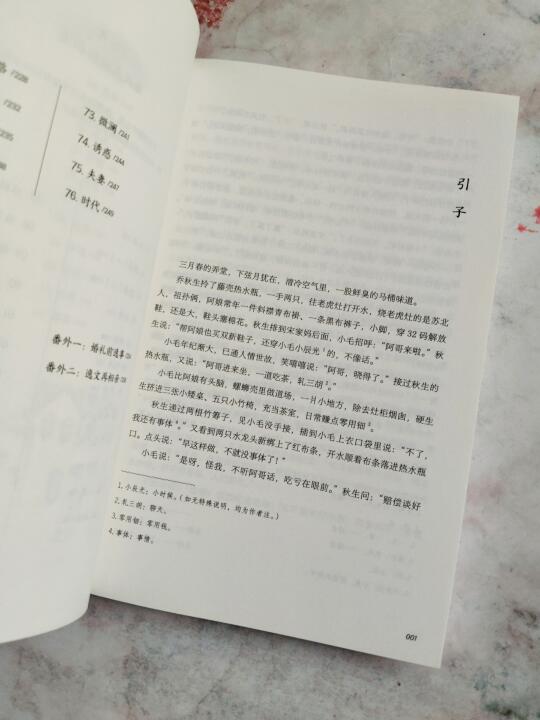 /228
/232
73. 微澜 /241
74. 诱惑 /244
75. 夫妻 /247
76. 时代 /249
番外一：婚礼前逸事
番外二：逸文再相会
引子
三月春的弄堂，下弦月犹在，清冷空气里，一股鲜臭的马桶味道。
乔秋生拎了藤壳热水瓶，一手两只，往老虎灶打开水，烧老虎灶的是苏北
人，祖孙俩，阿娘常年一件斜襟青布褂、一条黑布裤子，小脚，穿 32 码解放
鞋，还是大，鞋头塞棉花。秋生排到宋家妈后面，小毛招呼：“阿哥来啦。”秋
生说：“帮阿娘也买双新鞋子，还穿小毛小辰光¹的，不像话。”
小毛年纪渐大，已通人情世故，笑嘻嘻说：“阿哥，晓得了。”接过秋生的
热水瓶，又说：“阿哥进来坐，一道吃茶，轧三胡²。”
小毛比阿娘有头脑，螺蛳壳里做道场，一片小地方，除去灶柜烟囱，硬生
生挤进三张小矮桌、五只小竹椅，充当茶室，日常赚点零用钿³。
秋生递过两根竹筹子，见小毛没手接，插到小毛上衣口袋里说：“不了，
我还有事体⁴。”又看到两只水龙头新绑上了红布条，开水顺着布条落进热水瓶
口。点头说：“早这样做，不就没事体了！”
小毛说：“是呀，怪我，不听阿哥话，吃亏在眼前。”秋生问：“赔偿谈好
1. 小辰光：小时候。（如无特殊说明，均为作者注。）
2. 轧三胡：聊天。
3. 零用钿：零用钱。
4. 事体：事情。
001